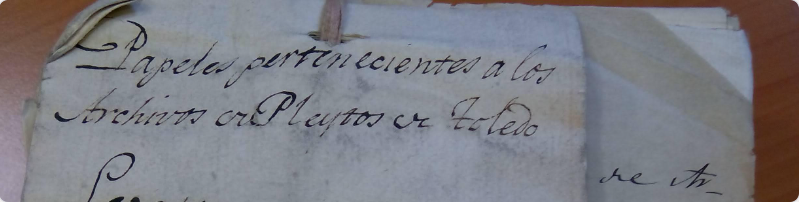 Papeles pertenecientes a los
Archivos de Pleytos de Toledo
de Ar